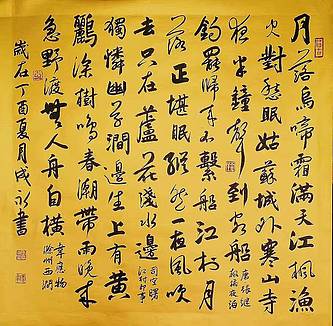 月落烏啼霜滿天江楓漁
火對愁眠姑蘇城外寒山寺
夜半鐘聲到客船
唐張継
楓橋夜泊
釣罷歸來不繫船江村月
落正堪眠縱然一夜風吹
去只在蘆花淺水邊
司空曙
江村即事
獨憐幽草澗邊生上有黃
鸝深樹鳴春潮帶雨晚來
急野渡無人舟自橫
韋應物
滁州西澗
歲在丁酉夏月成永書